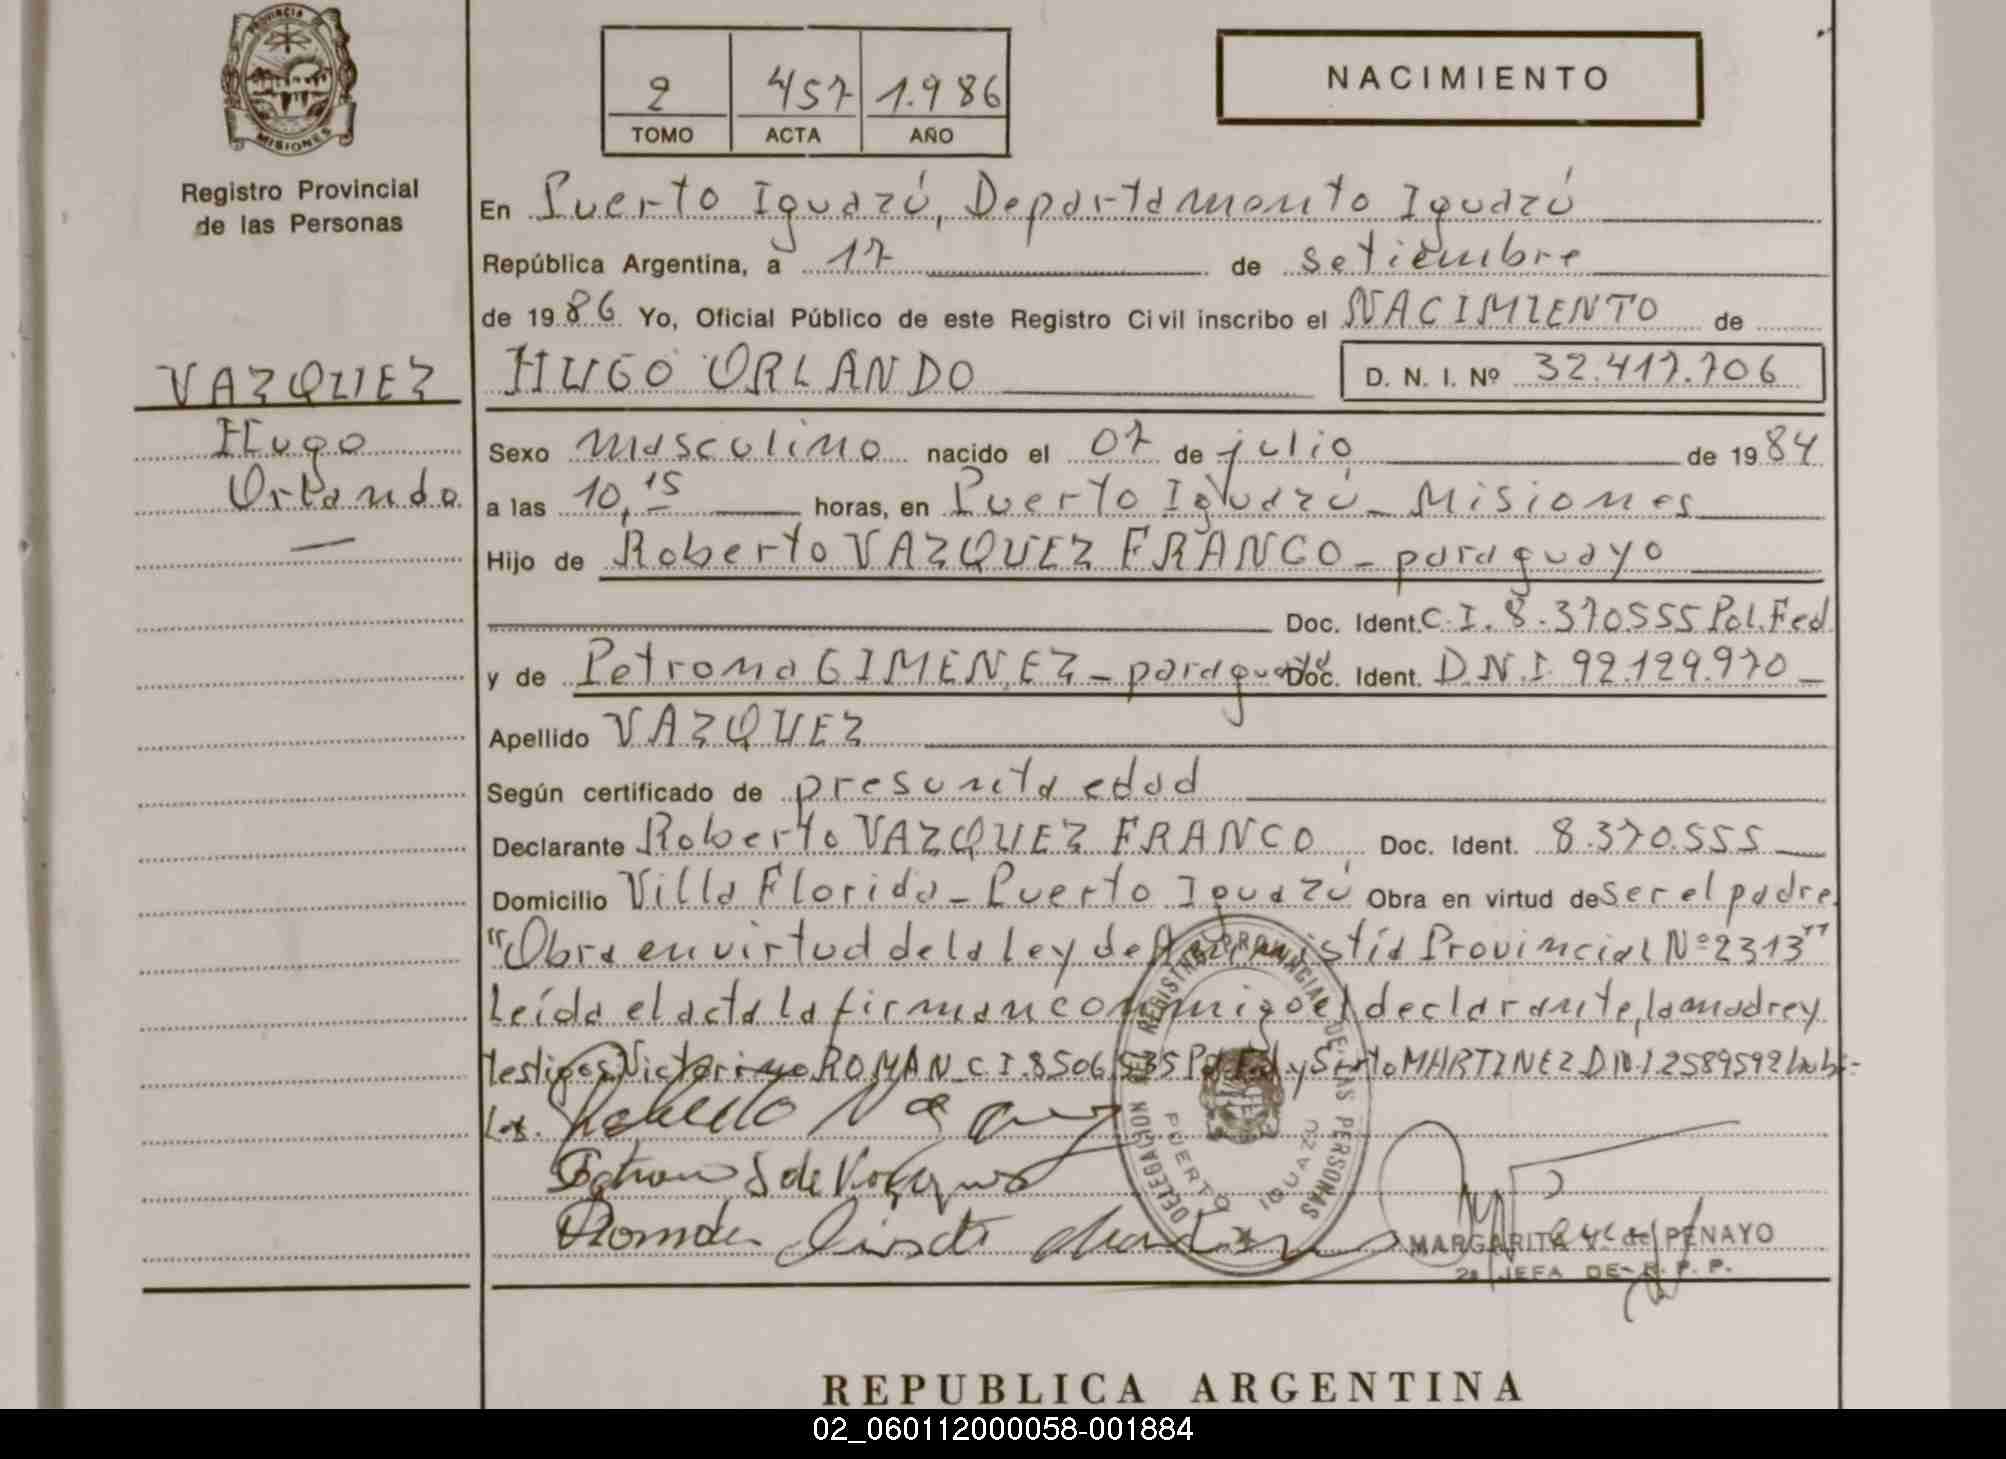 PROVINCIA
MISIONES
Registro Provincial
de las Personas
2 457 1.986
TOMO ACTA AÑO
NACIMIENTO
En Puerto Iguazú, Departamento Iguazú
República Argentina, a 17 de setiembre
de 1986 Yo, Oficial Público de este Registro Civil inscribo el NACIMIENTO de
VAZQUEZ
Hugo
Orlando
HUGO ORLANDO D. N. I. Nº 32.417.706
Sexo masculino nacido el 07 de julio de 1984
a las 10,15 horas, en Puerto Iguazú - Misiones
Hijo de Roberto VAZQUEZ FRANCO - paraguayo
Doc. Ident. C.I. 8.370555 Pol. Fed
y de Petrona GIMENEZ - paraguaya Doc. Ident. D.N.I. 92.129.970 -
Apellido VAZQUEZ
Según certificado de presunta edad
Declarante Roberto VAZQUEZ FRANCO Doc. Ident. 8.370.555
Domicilio Villa Florida - Puerto Iguazú Obra en virtud de ser el padre
"Obra en virtud de la ley de Amnistía Provincial Nº 2313"
Leída el acta la firman conmigo el declarante, la madre y
testigos Victorino ROMAN C.I. 8506535 Pol. Fed y Sixto MARTINEZ D.N.I. 2589592 hábi-
les.
Roberto Vazquez
DELEGACION DEL REGISTRO PROVINCIAL DE LAS PERSONAS
PUERTO IGUAZU
MARGARITA V. de PENAYO
2ª JEFA DE R. P. P.
REPUBLICA ARGENTINA
02_060112000058-001884